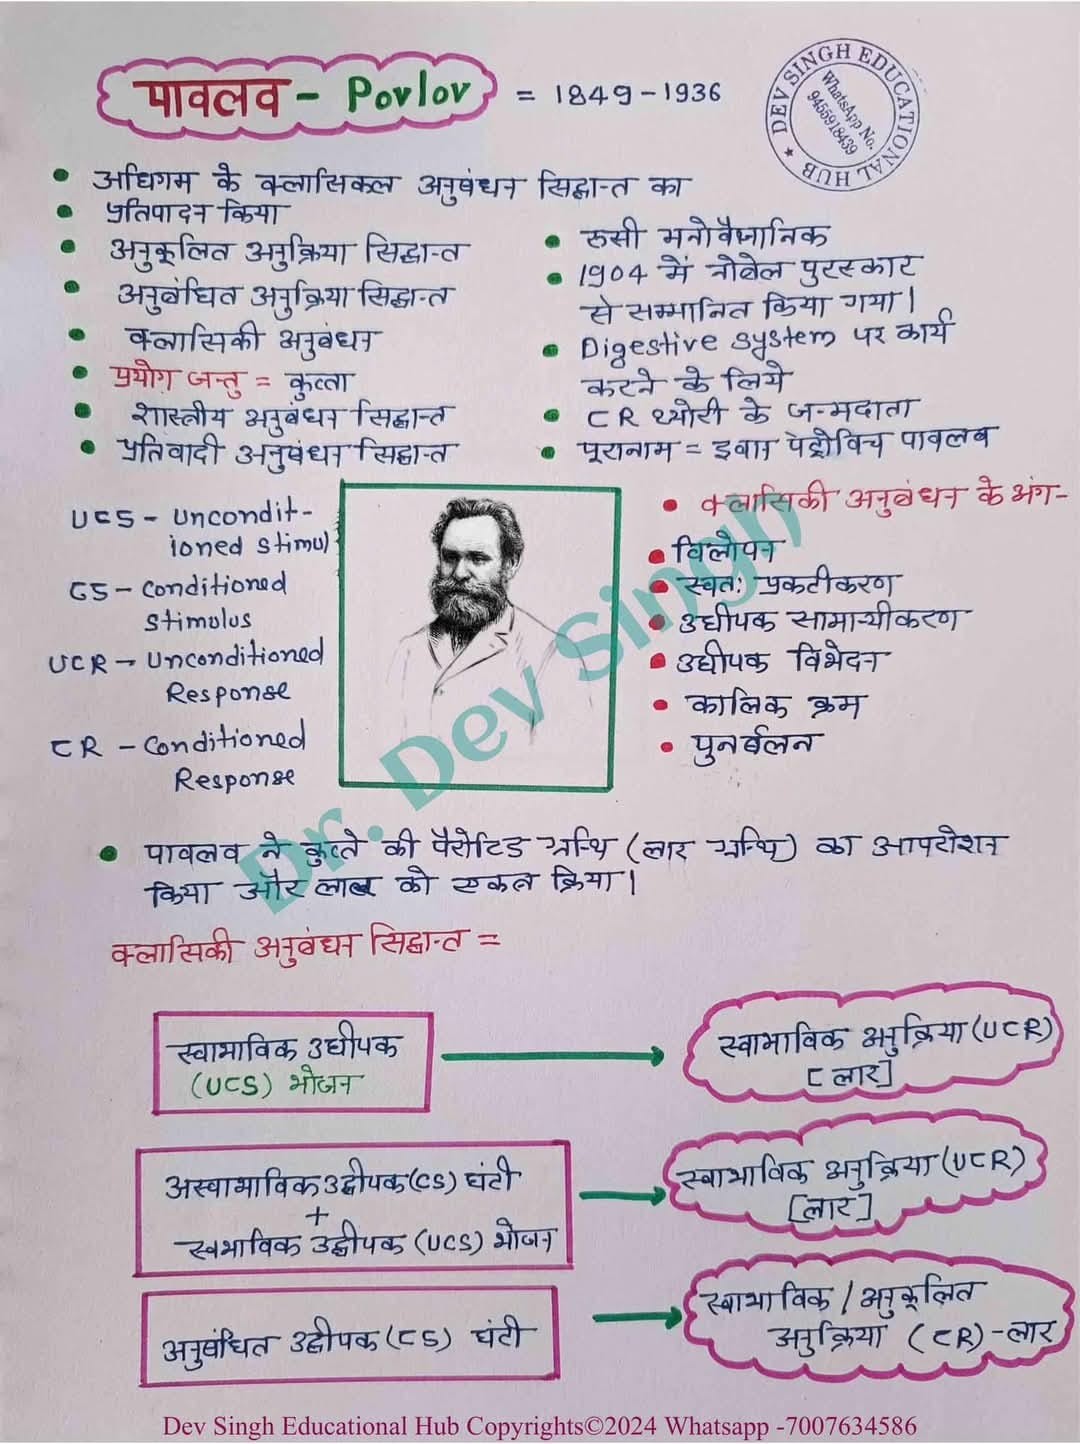 पावलव - Povlov = 1849-1936
DEV SINGH EDUCATIONAL HUB
WhatsApp No.
9455918439
• अधिगम के क्लासिकल अनुबंधन सिद्धान्त का
• प्रतिपादन किया
• अनुकूलित अनुक्रिया सिद्धान्त
• अनुबंधित अनुक्रिया सिद्धान्त
• क्लासिकी अनुबंधन
• प्रयोग जन्तु = कुत्ता
• शास्त्रीय अनुबंधन सिद्धान्त
• प्रतिवादी अनुबंधन सिद्धान्त
• रुसी मनोवैज्ञानिक
• 1904 में नोबेल पुरस्कार
से सम्मानित किया गया।
• Digestive system पर कार्य
करने के लिये
• CR थ्योरी के जन्मदाता
• पूरानाम = इवान पेट्रोविच पावलव
UCS - Uncondit-
ioned stimul
CS - Conditioned
Stimulus
UCR → Unconditioned
Response
CR - Conditioned
Response
• क्लासिकी अनुबंधन के अंग-
• विलोपन
• स्वत: प्रकटीकरण
• उद्यीपक सामान्यीकरण
• उद्यीपक विभेदन
• कालिक क्रम
• पुनर्बलन
Dr. Dev Singh
• पावलव ने कुत्ते की पैरोटिड ग्रन्थि (लार ग्रन्थि) का आपरोशन
किया और लार को एकत्र किया।
क्लासिकी अनुबंधन सिद्धान्त =
स्वाभाविक उद्यीपक
(UCS) भोजन
स्वाभाविक अनुक्रिया (UCR)
[लार]
अस्वाभाविक उद्दीपक (CS) घंटी
+
स्वभाविक उद्दीपक (UCS) भोजन
स्वाभाविक अनुक्रिया (UCR)
[लार]
अनुबंधित उद्दीपक (CS) घंटी
स्वाभाविक / अनुकूलित
अनुक्रिया (CR) - लार
Dev Singh Educational Hub Copyrights©2024 Whatsapp -7007634586